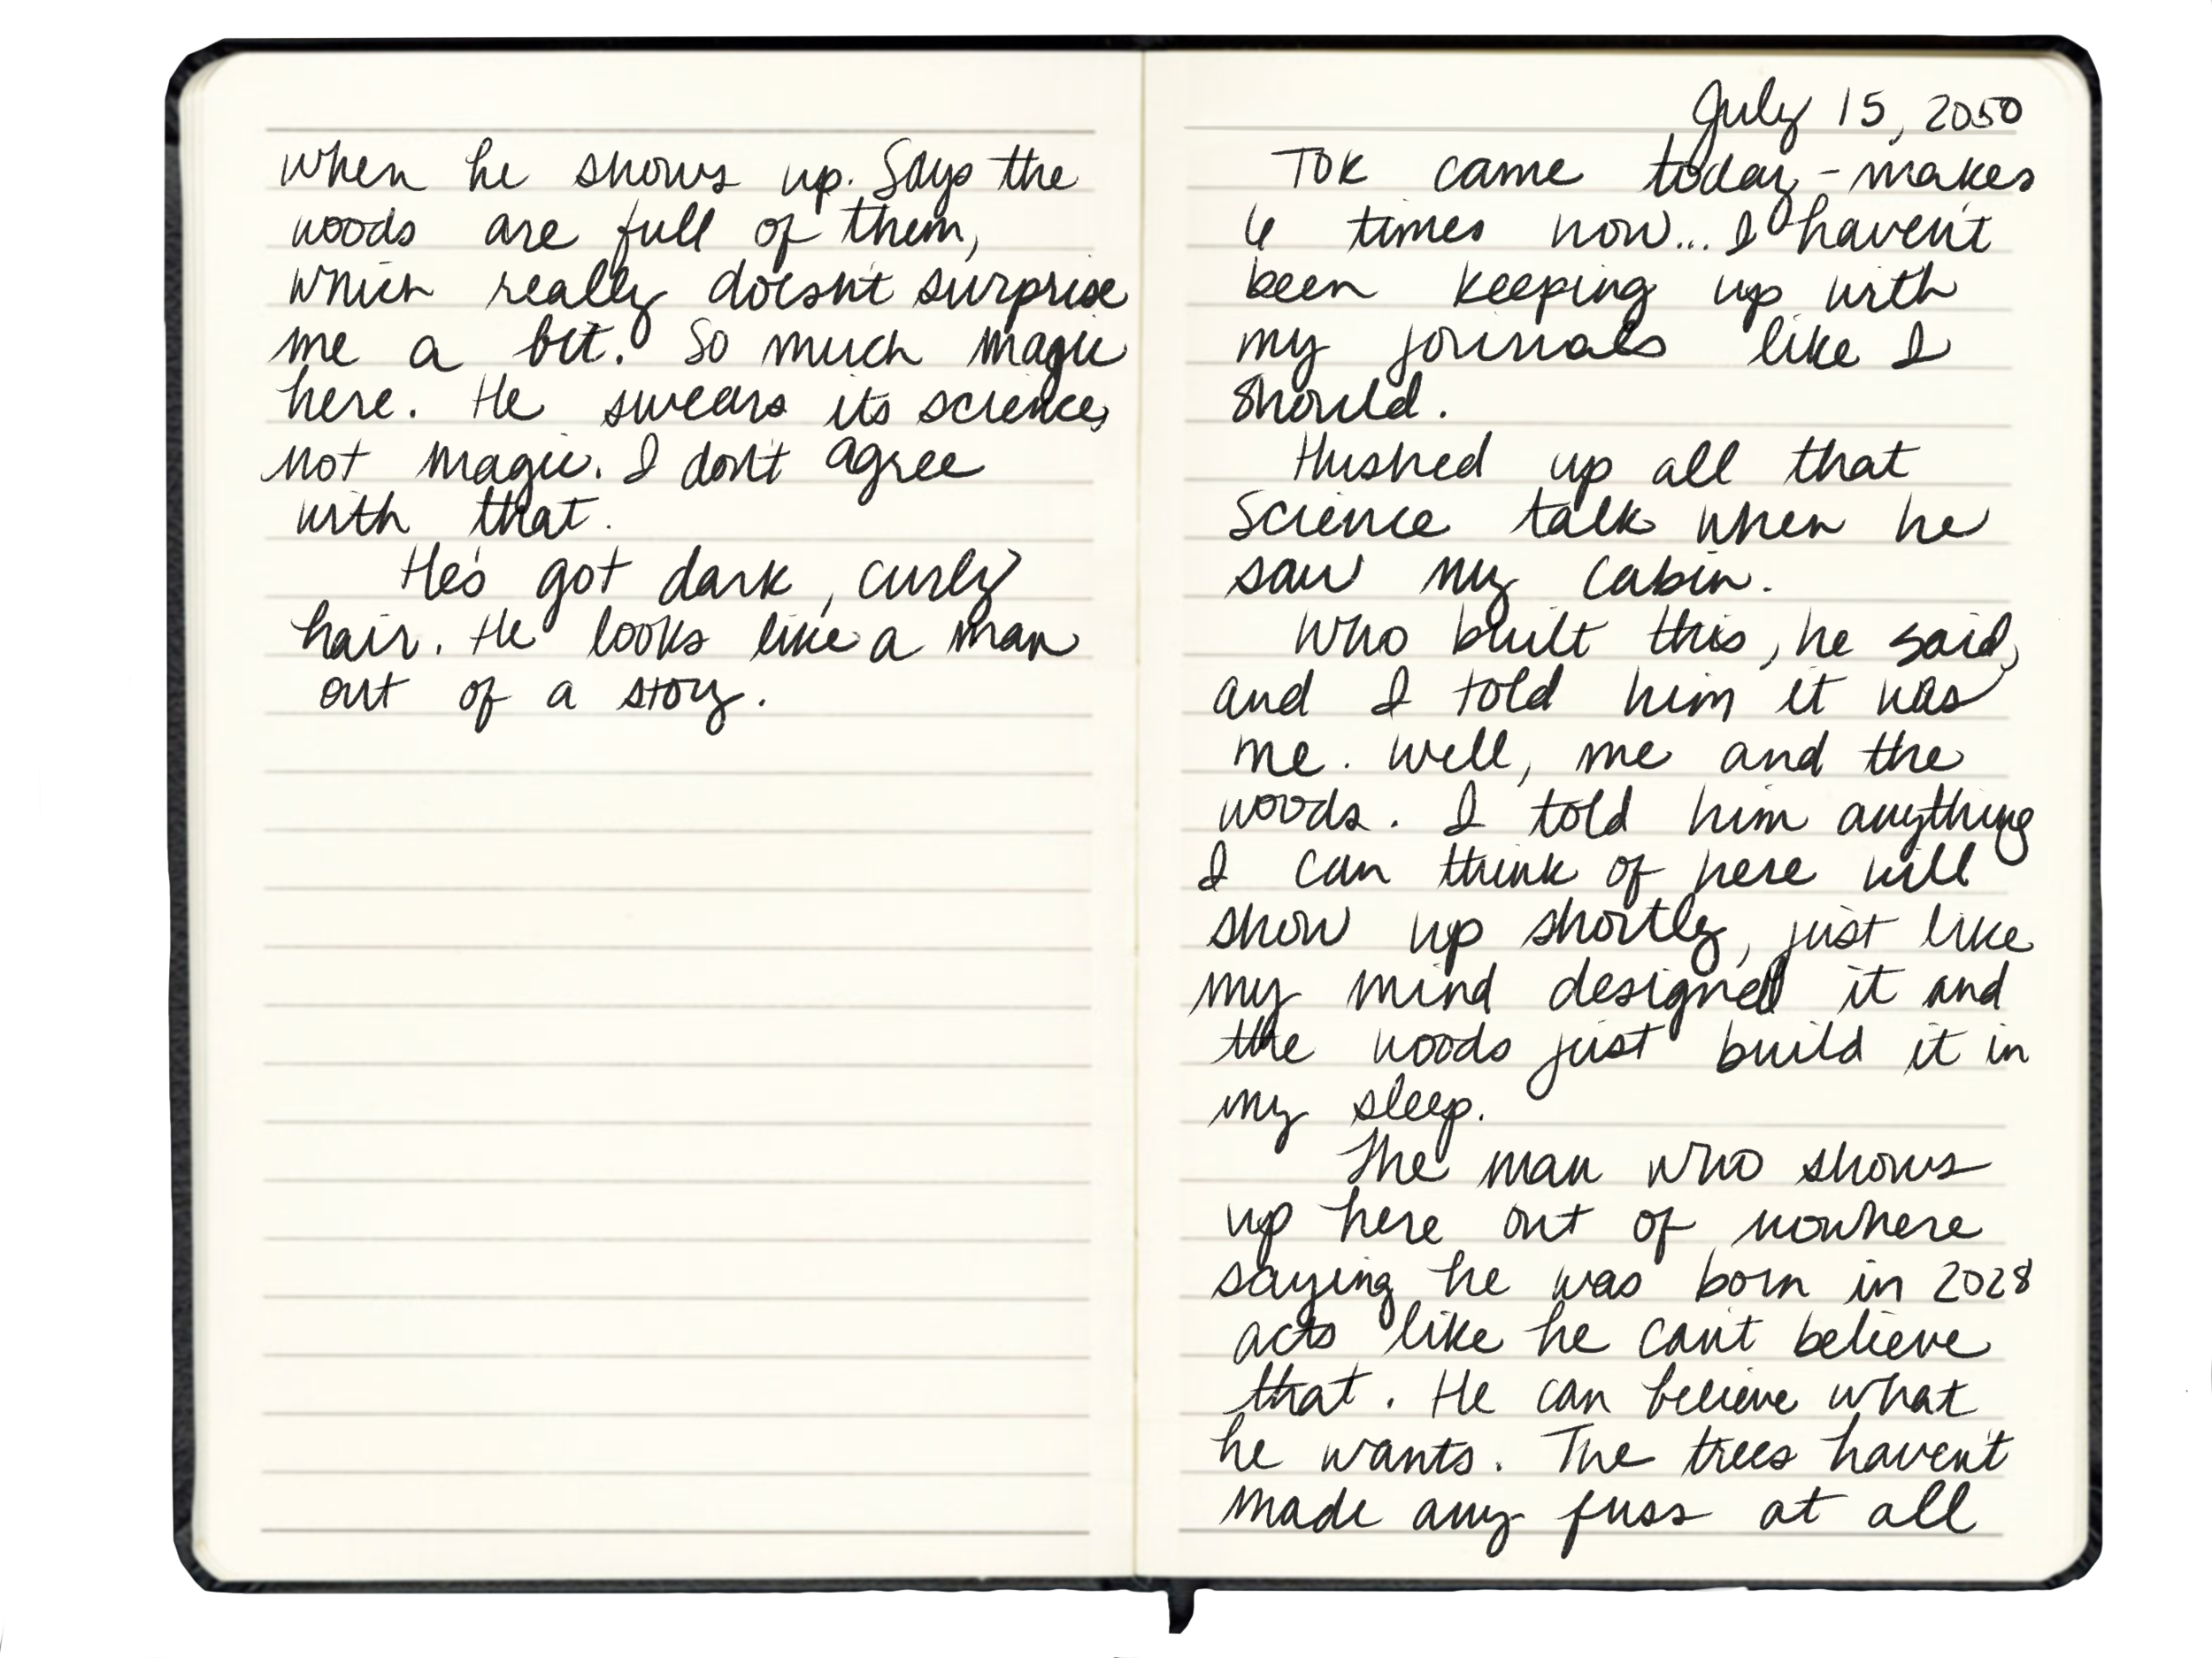 when he shows up. Says the
woods are full of them,
which really doesn't surprise
me a bit. So much magic
here. He swears its science,
not magic. I don't agree
with that.
He's got dark, curly
hair. He looks like a man
out of a story.
July 15, 2050
Tok came today - makes
6 times now... I haven't
been keeping up with
my journals like I
should.
Hushed up all that
science talk when he
saw my cabin.
Who built this, he said,
and I told him it was
me. Well, me and the
woods. I told him anything
I can think of here will
show up shortly, just like
my mind designed it and
the woods just build it in
my sleep.
The man who shows
up here out of nowhere
saying he was born in 2028
acts like he can't believe
that. He can believe what
he wants. The trees haven't
made any fuss at all